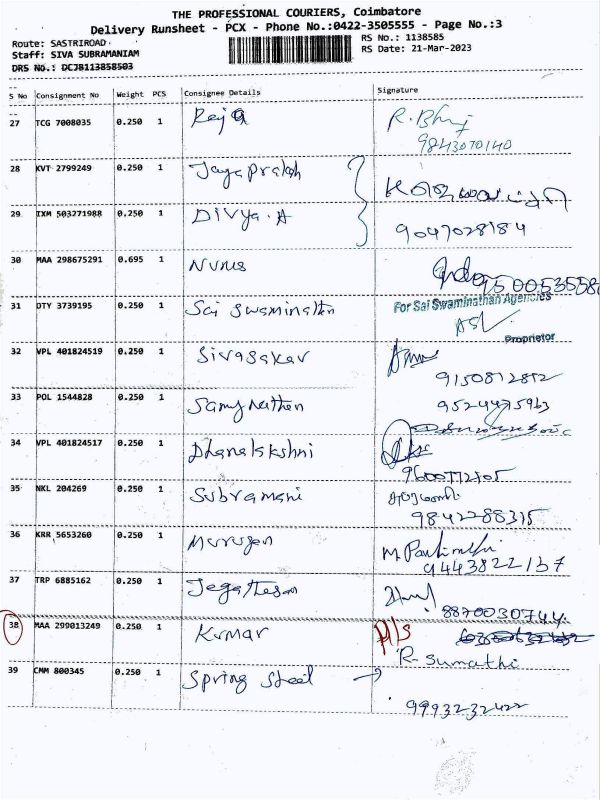 THE PROFESSIONAL COURIERS, Coimbatore
Delivery Runsheet - PCX - Phone No.:0422-3505555 - Page No.:3
Route: SASTRIROAD
Staff: SIVA SUBRAMANIAM
DRS No.: DCJB113858503
RS No.: 1138585
RS Date: 21-Mar-2023
S No Consignment No Weight PCS Consignee Details Signature
27 TCG 7008035 0.250 1 Raja
9843070140
28 KVT 2799249 0.250 1 Jayaprakash
29 IXM 503271988 0.250 1 Divya.A 9047028184
30 MAA 298675291 0.695 1
31 DTY 3739195 0.250 1 Sai Swaminathan For Sai Swaminathan Agencies
Proprietor
32 VPL 401824519 0.250 1 Sivasakar
9150812812
33 POL 1544828 0.250 1 Samynathen
34 VPL 401824517 0.250 1 Dhanalakshmi
35 NKL 204269 0.250 1 Subramani
9842288315
36 KRR 5653260 0.250 1 Murugan
9443822167
37 TRP 6885162 0.250 1 Jegatheesan
8870030744
38 MAA 299013249 0.250 1 Kumar P/S
R. Sumathi
39 CMM 800345 0.250 1 Spring Steel
9993232422